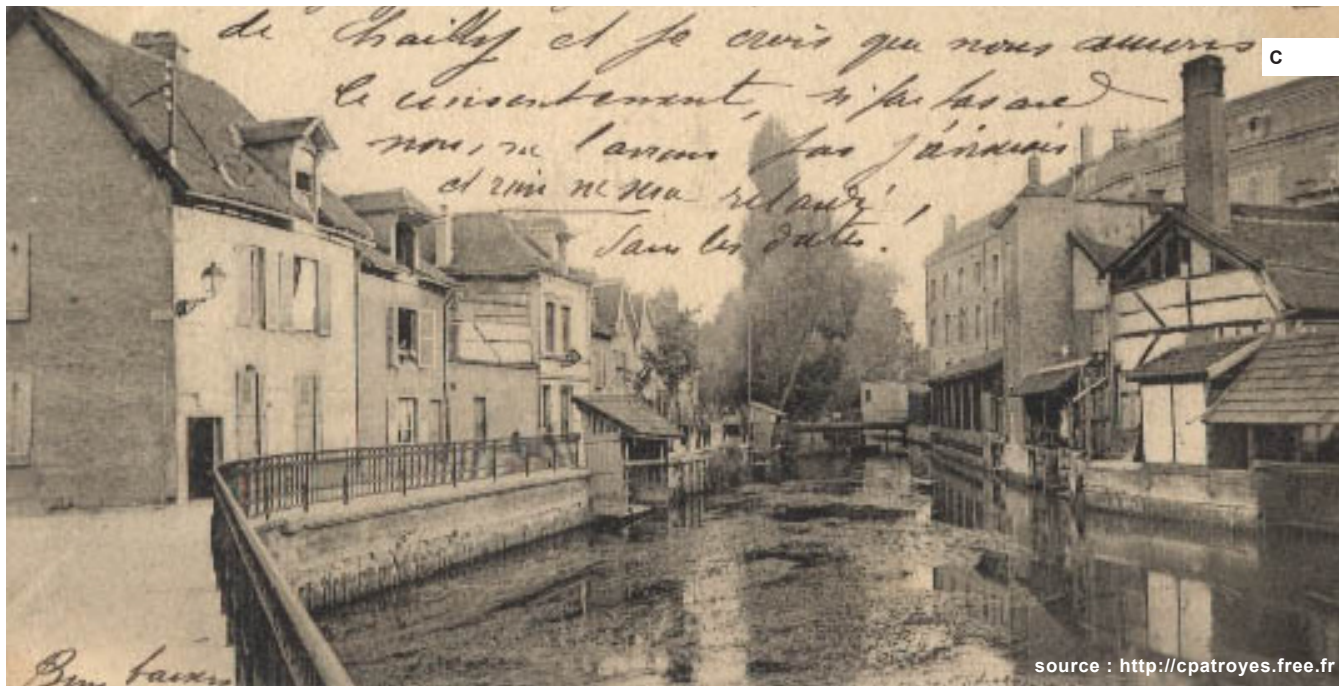 de Chailly et je crois que nous aurons
C
le consentement, si par hasard
nous ne l'avions pas j'écrirais
et rien ne sera retardé,
dans les dates.
Bons baisers
source : http://cpatroyes.free.fr